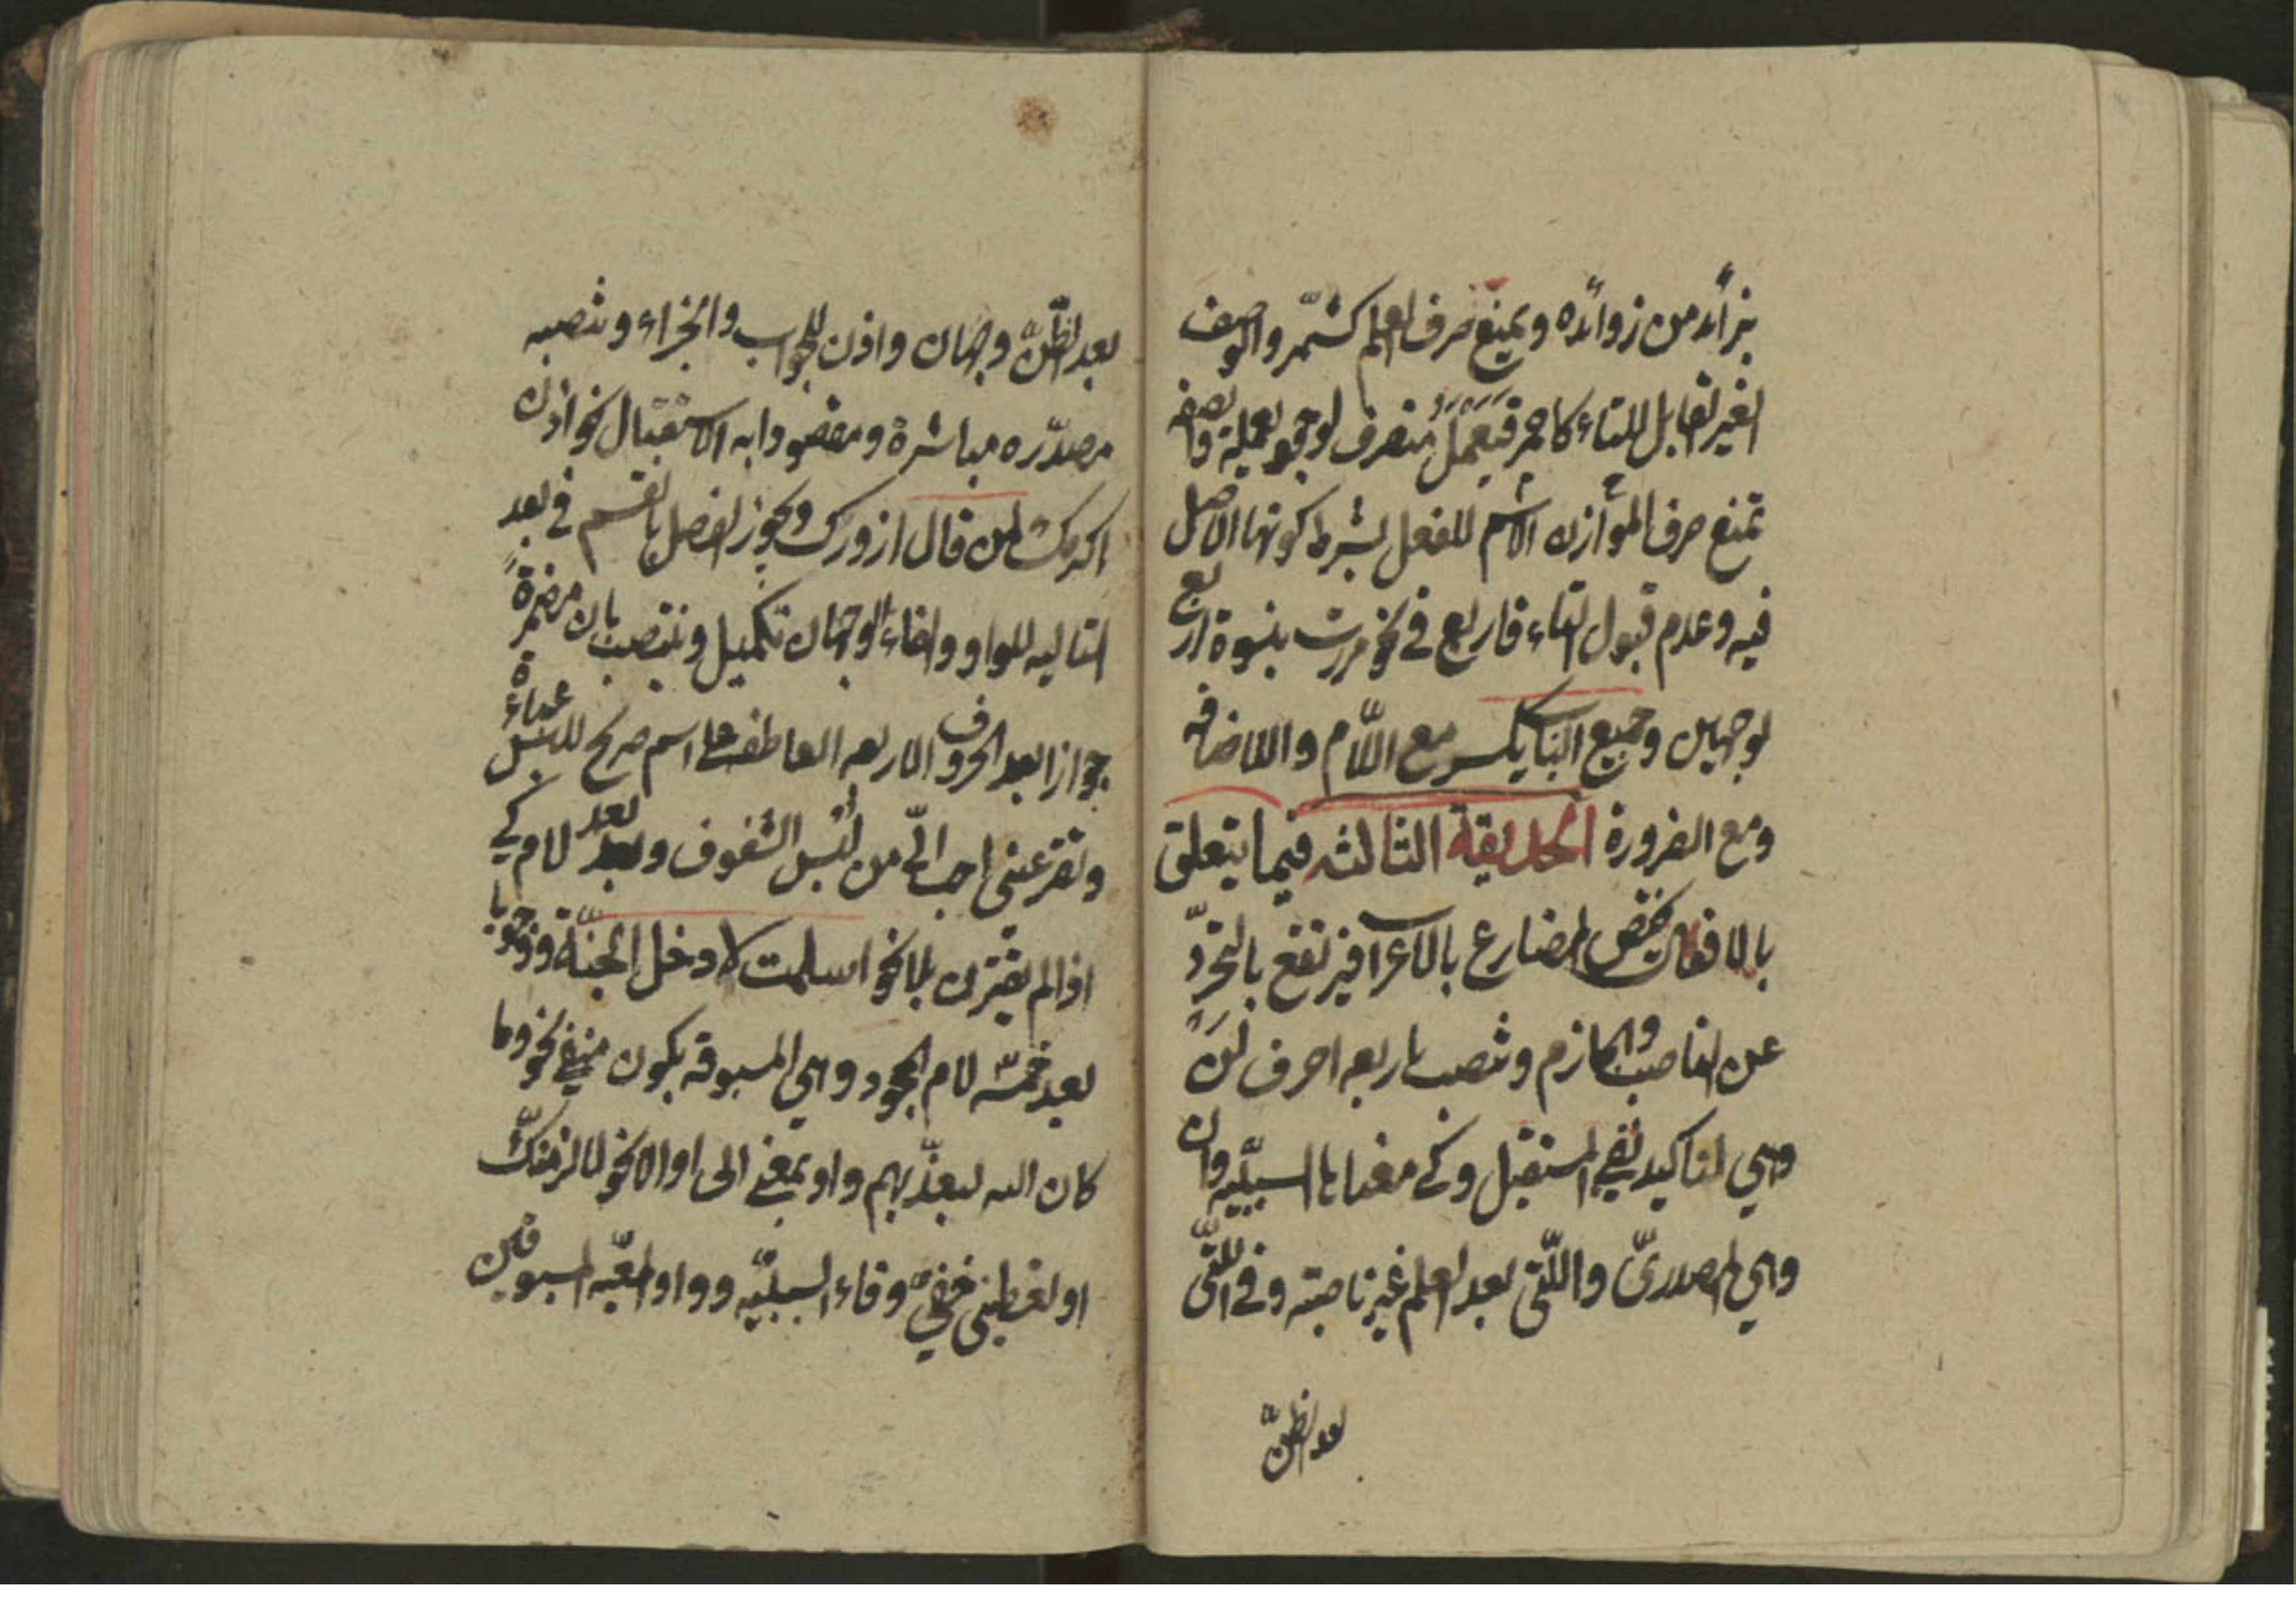 بزائد من زوائده ويمنع صرف العلم كشمّر والوصف
الغير القابل للتاء كاحمر فيعمل منصرف لوجود يعملة والصفه
تمنع صرف الموازن الاسم للفعل بشرط كونها الاصل
فيه وعدم قبول التاء فاربع في نحو مررت بنسوة اربع
لوجهين وجميع الباب يكسر مع اللّام والاضافه
ومع الضرورة الحديقة الثالثه فيما يتعلق
بالافعال يختص المضارع بالاعراب فيرتفع بالتجرّد
عن الناصب والجازم وينصب باربعه احرف لن
وهي لتاكيد نفي المستقبل وكي معناها السببيّه وان
وهي المصدريّ واللّتي بعد العلم غير ناصبته وفي اللّتي
بعد الظنّ
بعد الظنّ وجهان واذن للجواب والجزاء وتنصبه
مصدّره مباشرة ومقصودا به الاستقبال نحو اذن
اكرمك لمن قال ازورك ويجوز الفصل بالقسم في بعد
التاليه للواو والفاء الوجهان تكميل وينتصب بان مضمرة
جوازا بعد الحروف الاربعه العاطفة على اسم صريح للبس عباءة
وتقر عيني احب الىّ من لبس الشفوف وبعد لام كي
اذا لم يقترن بلا نحو اسلمت لادخل الجنّة ووجوبا
بعد خمسة لام الجحود وهي المسبوقه بكون منفي نحو وما
كان الله ليعذّبهم واو بمعنى الى او الا نحو لالزمنّك
او تعطيني حقّي وفاء السببيّه وواو المعيّه المسبوقين